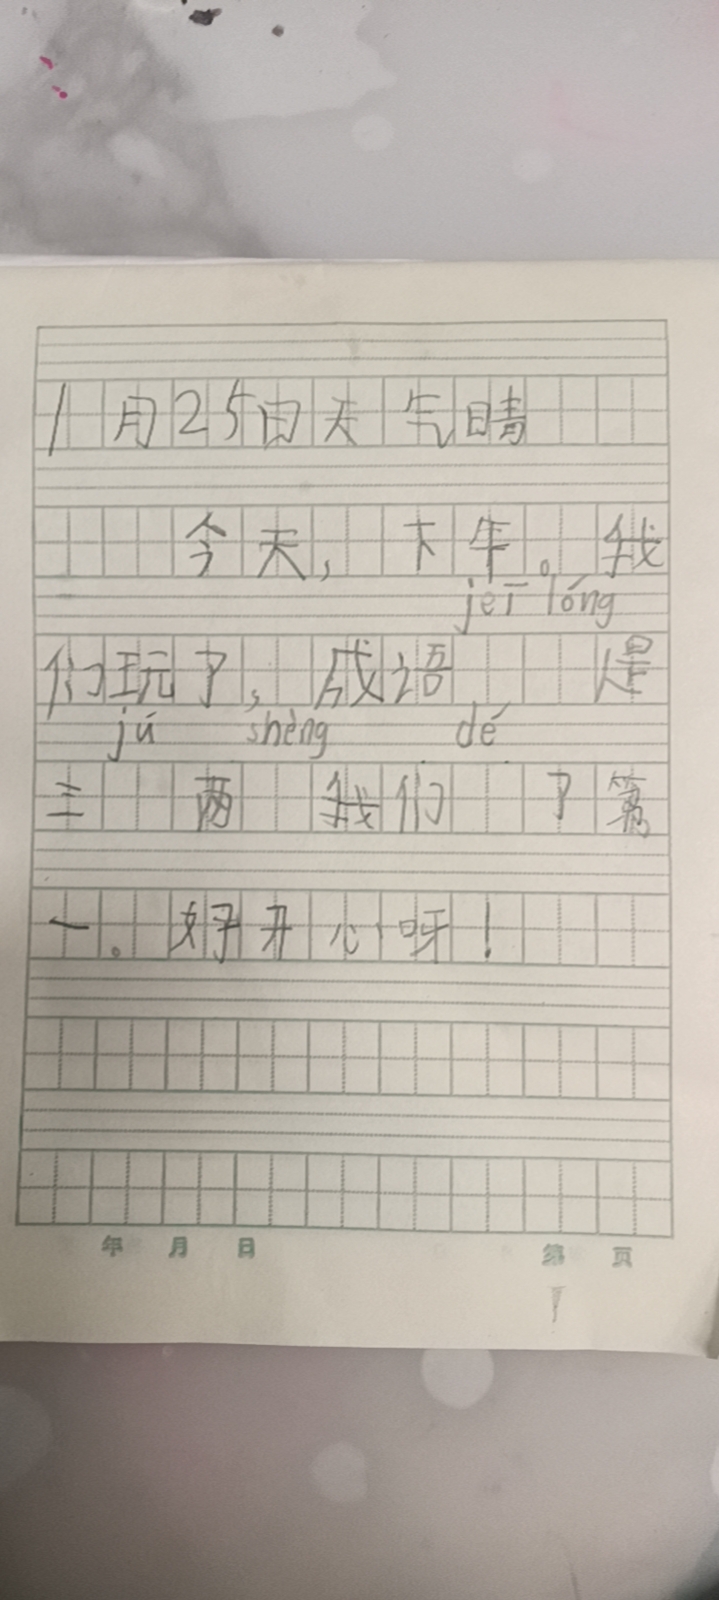 1月25日天气晴
今天，下午。我
jeī lóng
们玩了，成语 是
jú shèng dé
三 两 我们 了第
一。好开心呀！
年 月 日 第 页
1